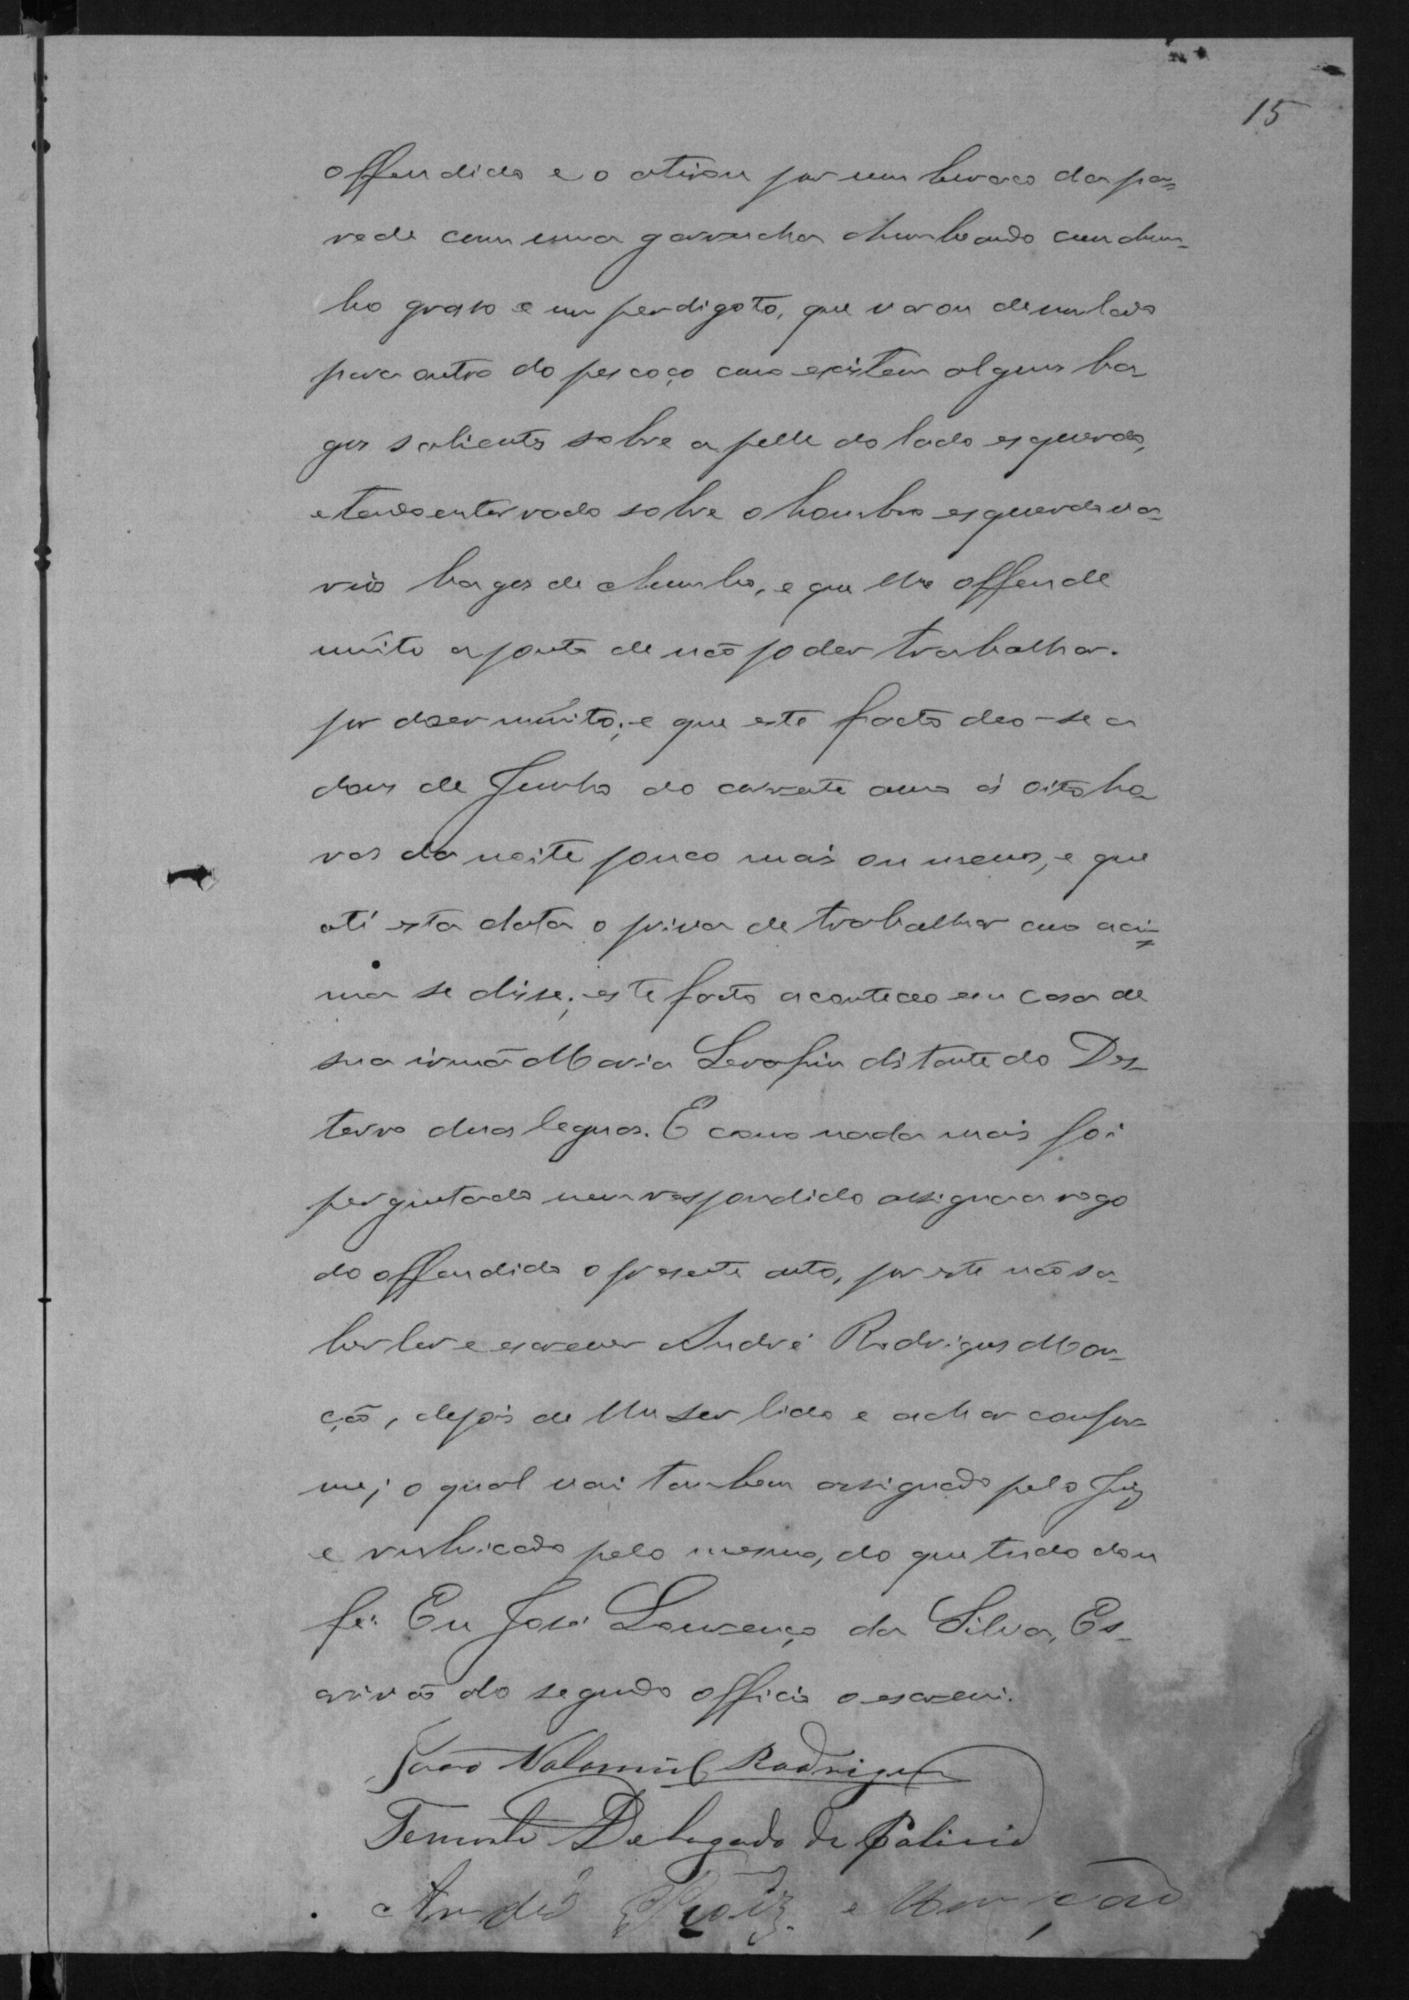 15
offendido e o atirou por um buraco da pa=
rede com uma garrucha chumbando com chum-
bo grosso e um perdigoto, que varou de um lado
para outro do pescoço como existem alguns ba-
gos salientes sobre a pelle do lado esquerdo,
e tendo entervado sobre o hombro esquerdo va-
rios bagos de chumbo, e que lhe offende
muito a ponto de não poder trabalhar.
por doer muito; e que este facto deo-se a
dous de Junho do corrente anno ás oito ho-
ras da noite pouco mais ou menos, e que
até esta data o priva de trabalhar como aci=
ma se disse; este facto aconteceo em casa de
sua irmã Maria Serafin distante do Des-
terro duas leguas. E como nada mais foi
perguntado nem respondido assigna a rogo
do offendido o presente auto, por este não sa-
ber ler e escrever André Rodrigues Mon-
ção, depois de lhe ser lido e achar confor-
me; o qual vai tambem assignado pelo Juiz
e rubricado pelo mesmo, do que tudo dou
fé. Eu José Lourenço da Silva, Es-
crivão do segundo officio o escrevi.
João Rodrigues
Tenente Delegado de Policia
André Roiz. e Monção